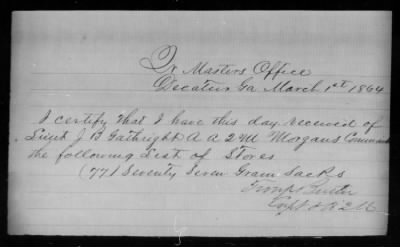 Qr Masters Office
Decatur Ga March 1st 1864
I certify that I have this day received of
Lieut J B Gathright A A 2 M Morgans Command
the following List of Stores
(77) Seventy Seven Grain Sacks
Capt & A 2 M